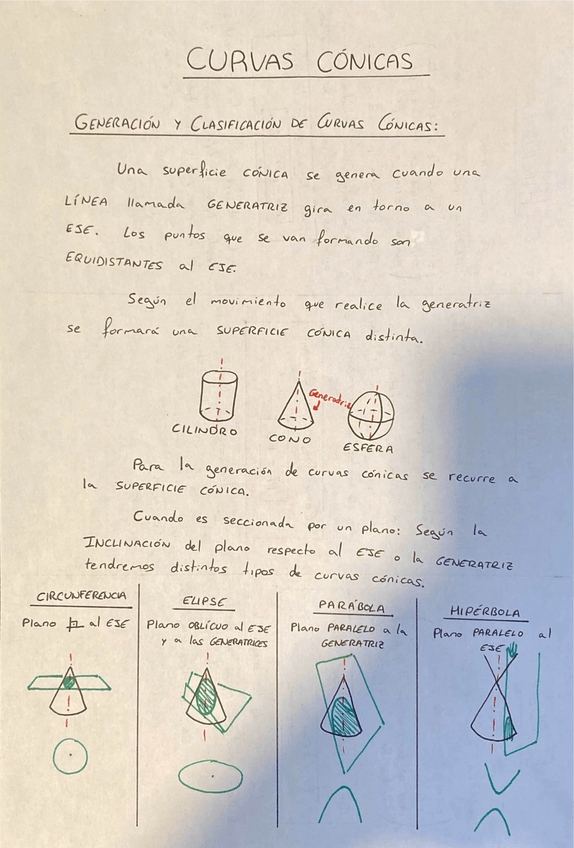 CURVAS CÓNICAS
GENERACIÓN Y CLASIFICACIÓN DE CURVAS CÓNICAS:
Una superficie CÓNICA se genera cuando una
LÍNEA llamada GENERATRIZ gira en torno a un
EJE. Los puntos que se van formando son
EQUIDISTANTES al EJE.
Según el movimiento que realice la generatriz
se formará una SUPERFICIE CÓNICA distinta.
Generatriz
CILINDRO
CONO
ESFERA
Para la generación de curvas cónicas se recurre a
la SUPERFICIE CÓNICA.
Cuando es seccionada por un plano: Según la
INCLINACIÓN del plano respecto al EJE o la GENERATRIZ
tendremos distintos tipos de curvas cónicas.
CIRCUNFERENCIA
Plano al EJE
ELIPSE
Plano OBLÍCUO al EJE
y a las GENERATRICES
PARÁBOLA
Plano PARALELO a la
GENERATRIZ
HIPÉRBOLA
Plano PARALELO al
EJE